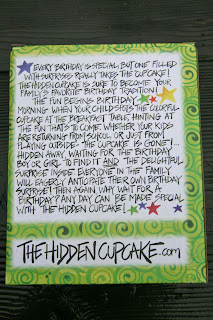 EVERY BIRTHDAY IS SPECIAL, BUT ONE FILLED
WITH SURPRISES REALLY TAKES THE CUPCAKE!
THE HIDDEN CUPCAKE IS SURE TO BECOME YOUR
FAMILY'S FAVORITE BIRTHDAY TRADITION!
THE FUN BEGINS BIRTHDAY
MORNING WHEN YOUR CHILD SPOTS THE COLORFUL
CUPCAKE AT THE BREAKFAST TABLE, HINTING AT
THE FUN THAT'S TO COME. WHETHER YOUR KIDS
ARE RETURNING FROM SCHOOL OR JUST FROM
PLAYING OUTSIDE - THE CUPCAKE IS GONE!...
HIDDEN AWAY, WAITING FOR THE BIRTHDAY
BOY OR GIRL TO FIND IT AND THE DELIGHTFUL
SURPRISE INSIDE. EVERYONE IN THE FAMILY
WILL EAGERLY ANTICIPATE THEIR OWN BIRTHDAY
SURPRISE! THEN AGAIN, WHY WAIT FOR A
BIRTHDAY? ANY DAY CAN BE MADE SPECIAL
WITH THE HIDDEN CUPCAKE!
THEHIDDENCUPCAKE.com